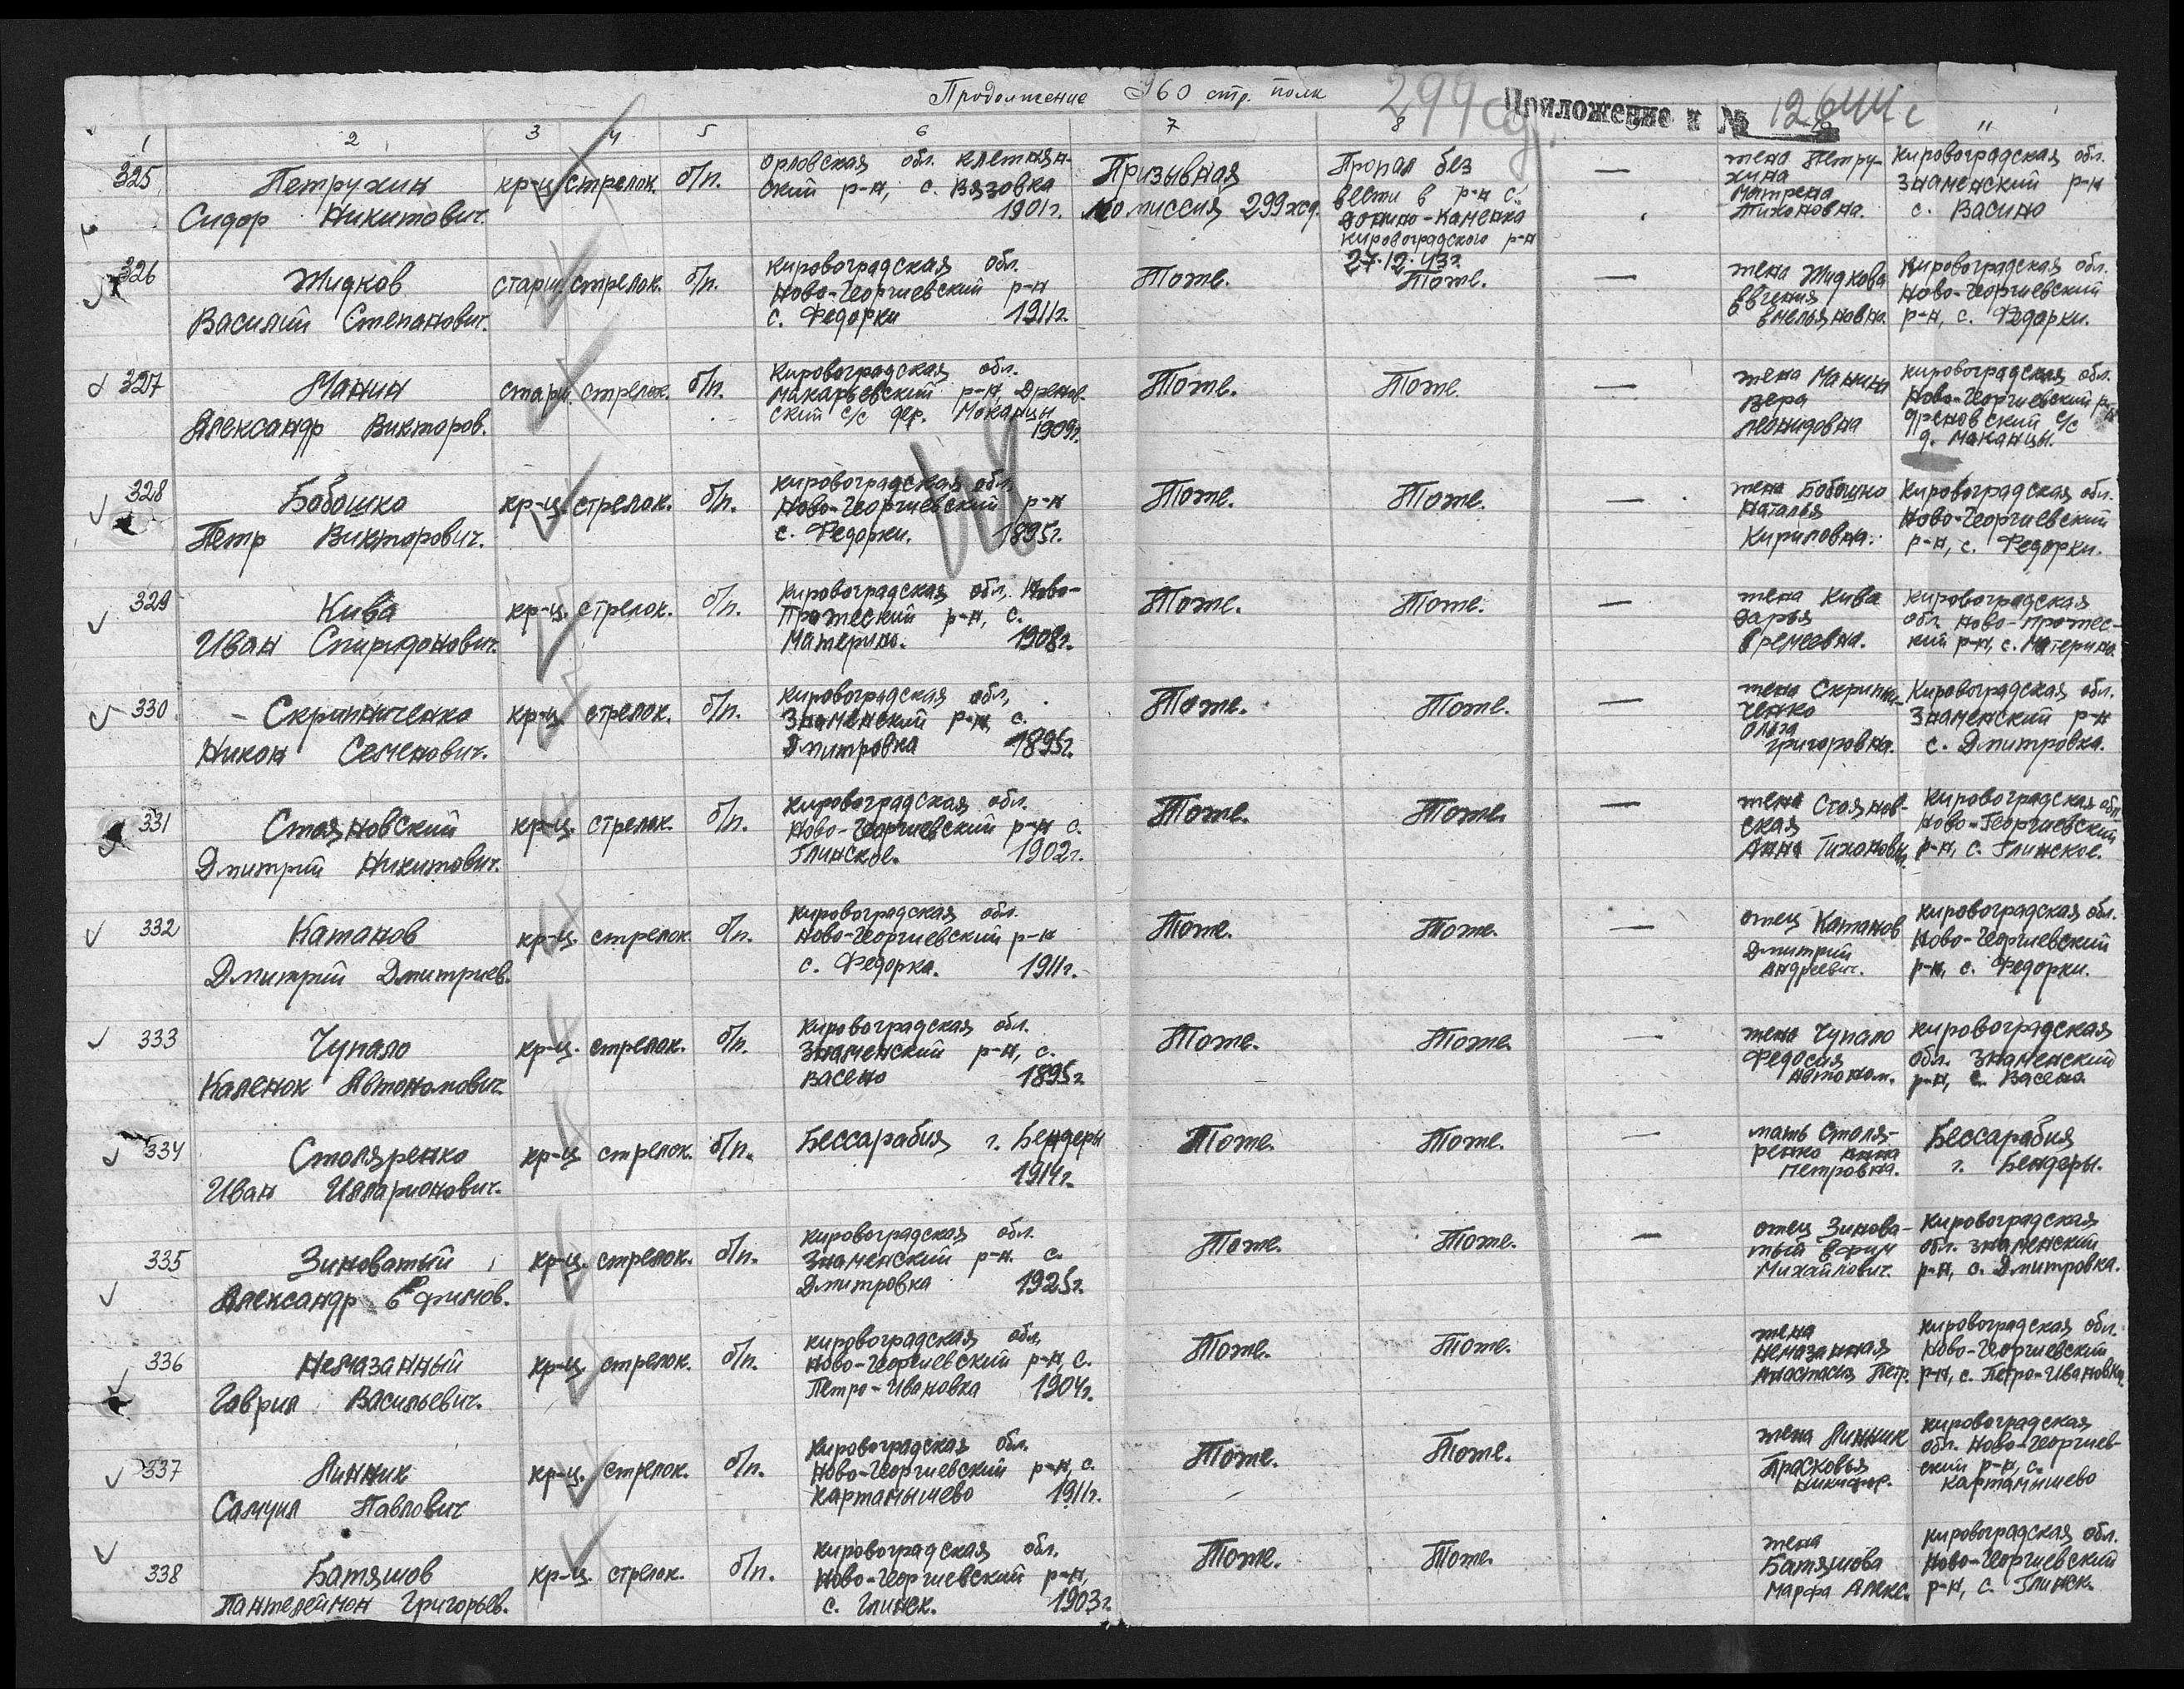 Продолжение 960 стр. полк
299 сд.
Приложение к № 12644 с
1 2 3 4 5 6 7 8 11
325 Петрухин
Сидор Никитович.
кр-ц стрелок. б/п.
Орловская обл. Клетнян-
ский р-н, с. Вязовка
1901г.
Призывная
комиссия 299 жд.
Пропал без
вести в р-н с.
Аонино-Каменка
Кировоградского р-н
27.12.43г.
—
жена Петру-
хина
Матрена
Тихоновна.
Кировоградская обл.
Знаменский р-н
с. Васино
326 Жидков
Василий Степанович.
старш. стрелок. б/п.
Кировоградская обл.
Ново-Георгиевский р-н
с. Федорки 1911г.
Тоже.
Тоже.
—
жена Жидкова
Евгения
Емельяновна.
Кировоградская обл.
Ново-Георгиевский
р-н, с. Федорки.
327 Манин
Александр Викторов.
старш. стрелок. б/п.
Кировоградская обл.
Макарьевский р-н, Дренов-
ский с/с дер. Моканцы
1909г.
Тоже.
Тоже.
—
жена Манина
Вера
Леонидовна
Кировоградская обл.
Ново-Георгиевский р-н
Дреновский с/с
д. Маканцы.
328 Бобошко
Петр Викторович.
кр-ц. стрелок. б/п.
Кировоградская обл.
Ново-Георгиевский р-н
с. Федорки. 1895г.
Тоже.
Тоже.
—
жена Бобошко
Наталья
Кириловна.
Кировоградская обл.
Ново-Георгиевский
р-н, с. Федорки.
329 Кива
Иван Спиридонович.
кр-ц. стрелок. б/п.
Кировоградская обл. Ново-
Пражеский р-н, с.
Материно. 1908г.
Тоже.
Тоже.
—
жена Кива
Дарья
Еремеевна.
Кировоградская
обл. Ново-Пражес-
кий р-н, с. Материно.
330 Скрипниченко
Никон Семенович.
кр-ц. стрелок. б/п.
Кировоградская обл,
Знаменский р-н, с.
Дмитровка 1895г.
Тоже.
Тоже.
—
жена Скрипни-
ченко
Ольга
Григоровна.
Кировоградская обл.
Знаменский р-н
с. Дмитровка.
331 Стояновский
Дмитрий Никитович.
кр-ц. стрелок. б/п.
Кировоградская обл.
Ново-Георгиевский р-н с.
Глинское. 1902г.
Тоже.
Тоже.
—
жена Стоянов-
ская
Анна Тихоновн.
Кировоградская обл.
Ново-Георгиевский
р-н, с. Глинское.
332 Катанов
Дмитрий Дмитриев.
кр-ц. стрелок. б/п.
Кировоградская обл.
Ново-Георгиевский р-н
с. Федорка. 1911г.
Тоже.
Тоже.
—
отец Катанов
Дмитрий
Андреевич.
Кировоградская обл.
Ново-Георгиевский
р-н, с. Федорки.
333 Чупало
Каленюк Автономович.
кр-ц. стрелок. б/п.
Кировоградская обл.
Знаменский р-н, с.
Васено 1895г.
Тоже.
Тоже
—
жена Чупало
Федосия
Автоном.
Кировоградская
обл. Знаменский
р-н, с. Васено
334 Столяренко
Иван Илларионович.
кр-ц. стрелок. б/п.
Бессарабия г. Бендеры
1914г.
Тоже.
Тоже.
—
мать Столя-
ренко Анна
Петровна.
Бессарабия
г. Бендеры.
335 Зиноватый
Александр Ефимов.
кр-ц. стрелок. б/п.
Кировоградская обл.
Знаменский р-н. с.
Дмитровка 1925г.
Тоже.
Тоже.
—
отец Зинова-
тый Ефим
Михайлович.
Кировоградская
обл. Знаменский
р-н, с. Дмитровка.
336 Немазанный
Гаврил Васильевич.
кр-ц. стрелок. б/п.
Кировоградская обл.
Ново-Георгиевский р-н, с.
Петро-Ивановка 1904г.
Тоже.
Тоже.
жена
Немазанная
Анастасия Петр.
Кировоградская обл.
Ново-Георгиевский
р-н, с. Петро-Ивановка.
337 Линник
Самуил Павлович
кр-ц. стрелок. б/п.
Кировоградская обл.
Ново-Георгиевский р-н, с.
Картамышево 1911г.
Тоже.
Тоже.
жена Линник
Прасковья
Никифор.
Кировоградская
обл. Ново-Георгиев-
ский р-н, с.
Картамышево
338 Батяшов
Пантелеймон Григорьев.
кр-ц. стрелок. б/п.
Кировоградская обл.
Ново-Георгиевский р-н,
с. Глинск. 1903г.
Тоже.
Тоже.
жена
Батяшова
Марфа Алекс.
Кировоградская обл.
Ново-Георгиевский
р-н, с. Глинск.